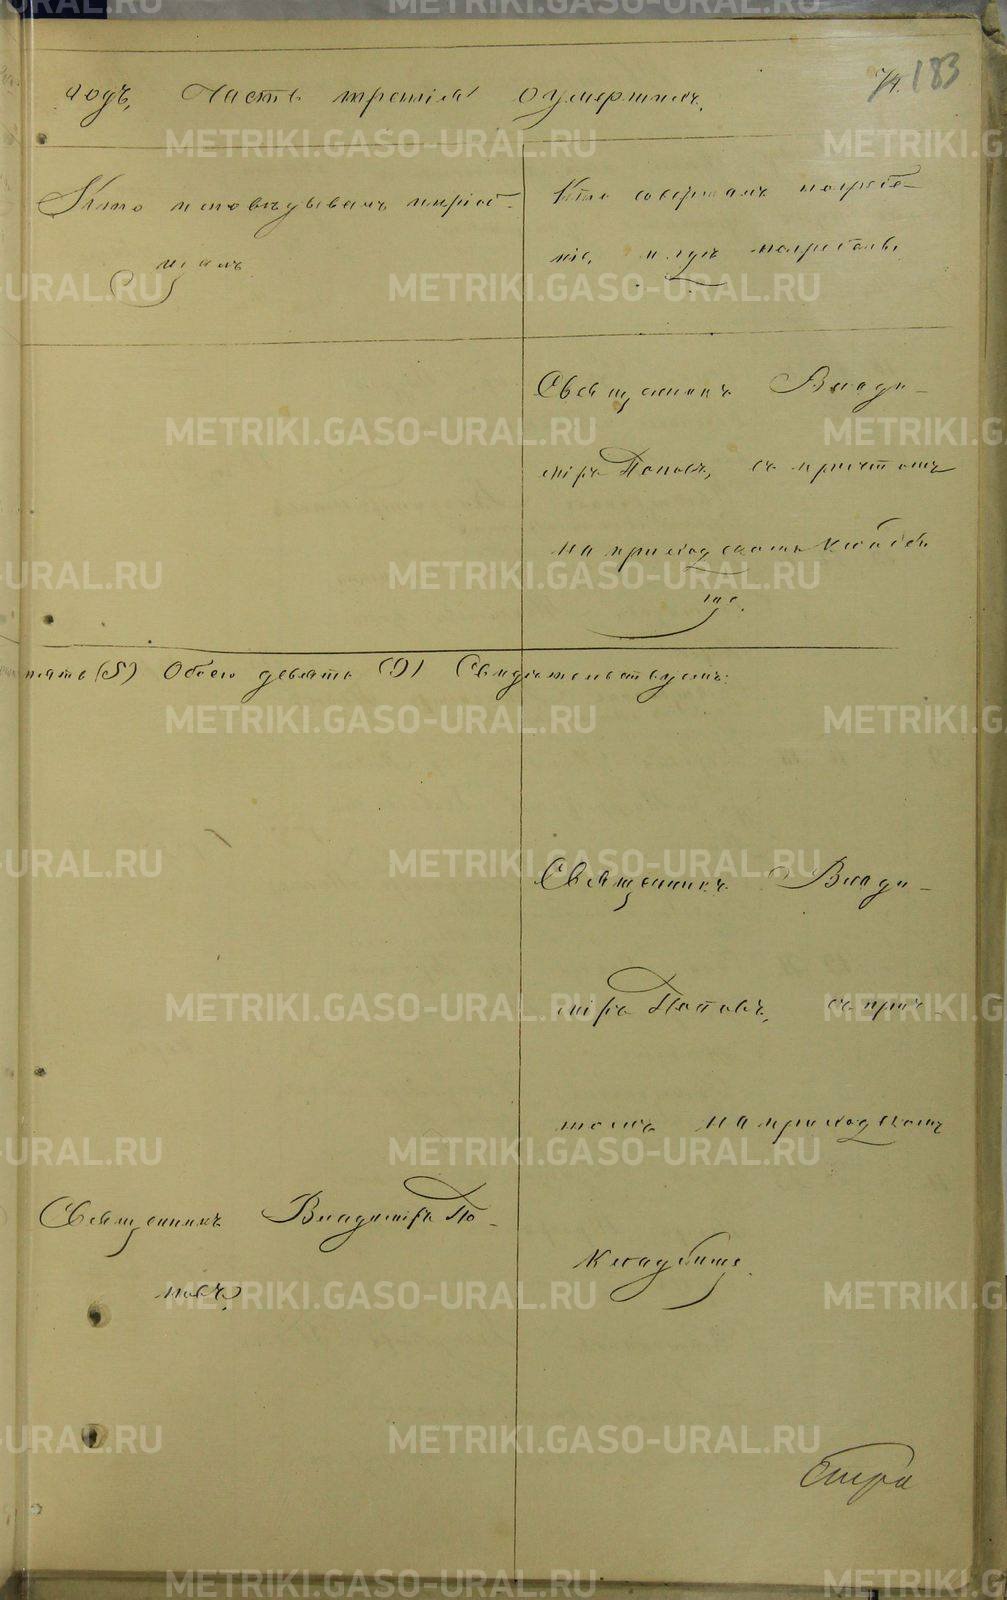 74. 183
годъ, Часть третія о умершихъ.
Кто исповѣдывалъ и пріоб-
щалъ
Кто совершалъ погребе-
ніе, и гдѣ погребены.
Священникъ Влади-
міръ Поповъ, съ причтомъ
на приходскомъ кладби
ще.
пять (5) Обоего девять (9) Свидѣтельствуемъ:
Священникъ Влади-
міръ Поповъ, съ прич-
томъ на приходскомъ
кладбище.
Священникъ Владиміръ По-
повъ
METRIKI.GASO-URAL.RU